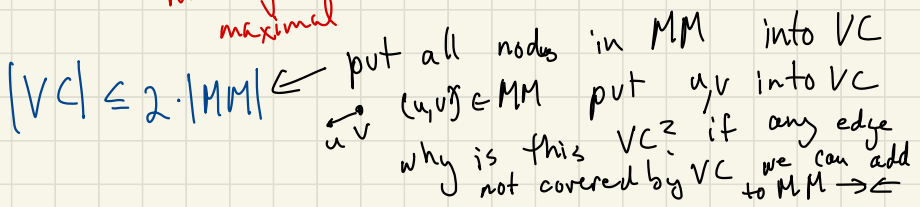 maximal
|VC| ≤ 2·|MM| ← put all nodes in MM into VC
(u,v) ∈ MM put u,v into VC
u v
why is this VC? if any edge
not covered by VC we can add
to MM →←